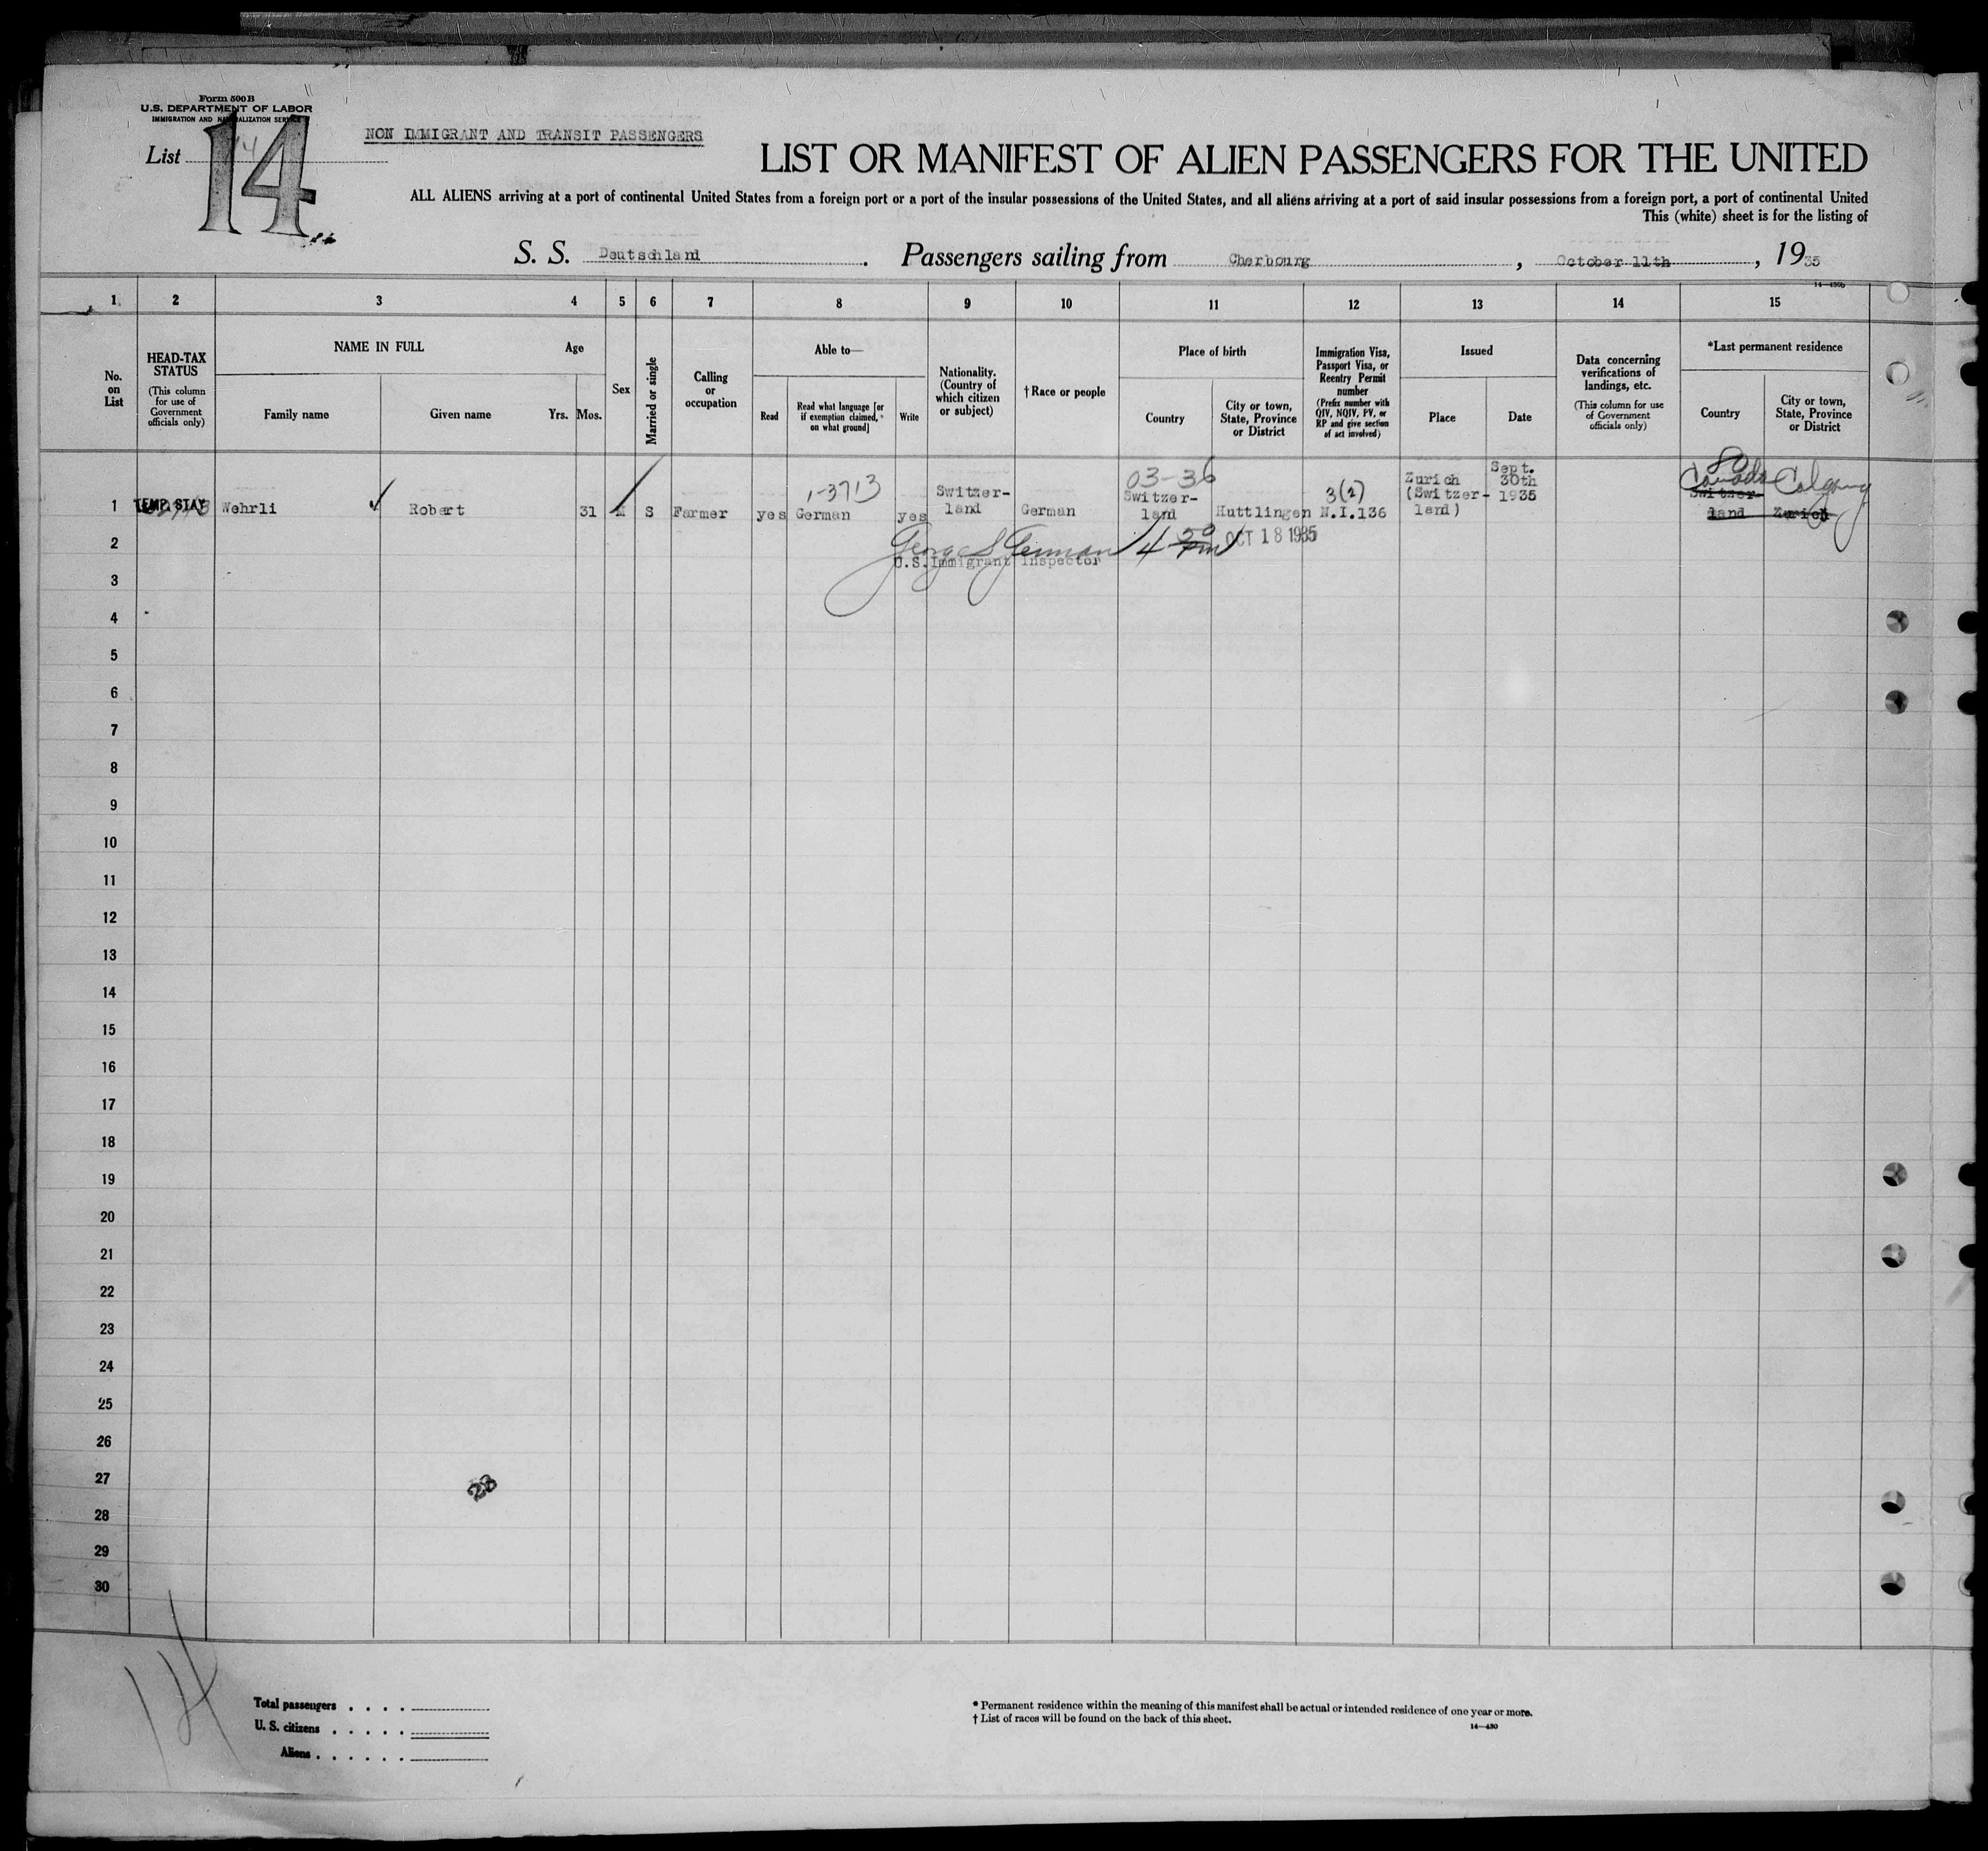 Form 500B
U.S. DEPARTMENT OF LABOR
IMMIGRATION AND NATURALIZATION SERVICE
List 14
14
NON IMMIGRANT AND TRANSIT PASSENGERS
LIST OR MANIFEST OF ALIEN PASSENGERS FOR THE UNITED
ALL ALIENS arriving at a port of continental United States from a foreign port or a port of the insular possessions of the United States, and all aliens arriving at a port of said insular possessions from a foreign port, a port of continental United
This (white) sheet is for the listing of
S. S. Deutschland. Passengers sailing from Cherbourg, October 11th, 1935
14-430b
1 2 3 4 5 6 7 8 9 10 11 12 13 14 15
No. on List
HEAD-TAX STATUS
(This column for use of Government officials only)
NAME IN FULL
Family name
Given name
Age
Yrs. Mos.
Sex
Married or single
Calling or occupation
Able to—
Read
Read what language [or if exemption claimed, on what ground]
Write
Nationality. (Country of which citizen or subject)
†Race or people
Place of birth
Country
City or town, State, Province or District
Immigration Visa, Passport Visa, or Reentry Permit number
(Prefix number with QIV, NQIV, PV, or RP and give section of act involved)
Issued
Place
Date
Data concerning verifications of landings, etc.
(This column for use of Government officials only)
*Last permanent residence
Country
City or town, State, Province or District
1-3713
03-36
3(2)
Canada Calgary
1 TEMP. STAY Wehrli Robert 31 M S Farmer yes German yes Switzer-land German Switzer-land Huttlingen N.I.136 Zurich (Switzer-land) Sept. 30th 1935 Switzer-land Zurich
George S German 4 50 PM OCT 18 1935
U.S. Immigrant Inspector
2
3
4
5
6
7
8
9
10
11
12
13
14
15
16
17
18
19
20
21
22
23
24
25
26
27
28
29
30
23
14
Total passengers . . . .
U. S. citizens . . . . .
Aliens . . . . . .
* Permanent residence within the meaning of this manifest shall be actual or intended residence of one year or more.
† List of races will be found on the back of this sheet.
14—430